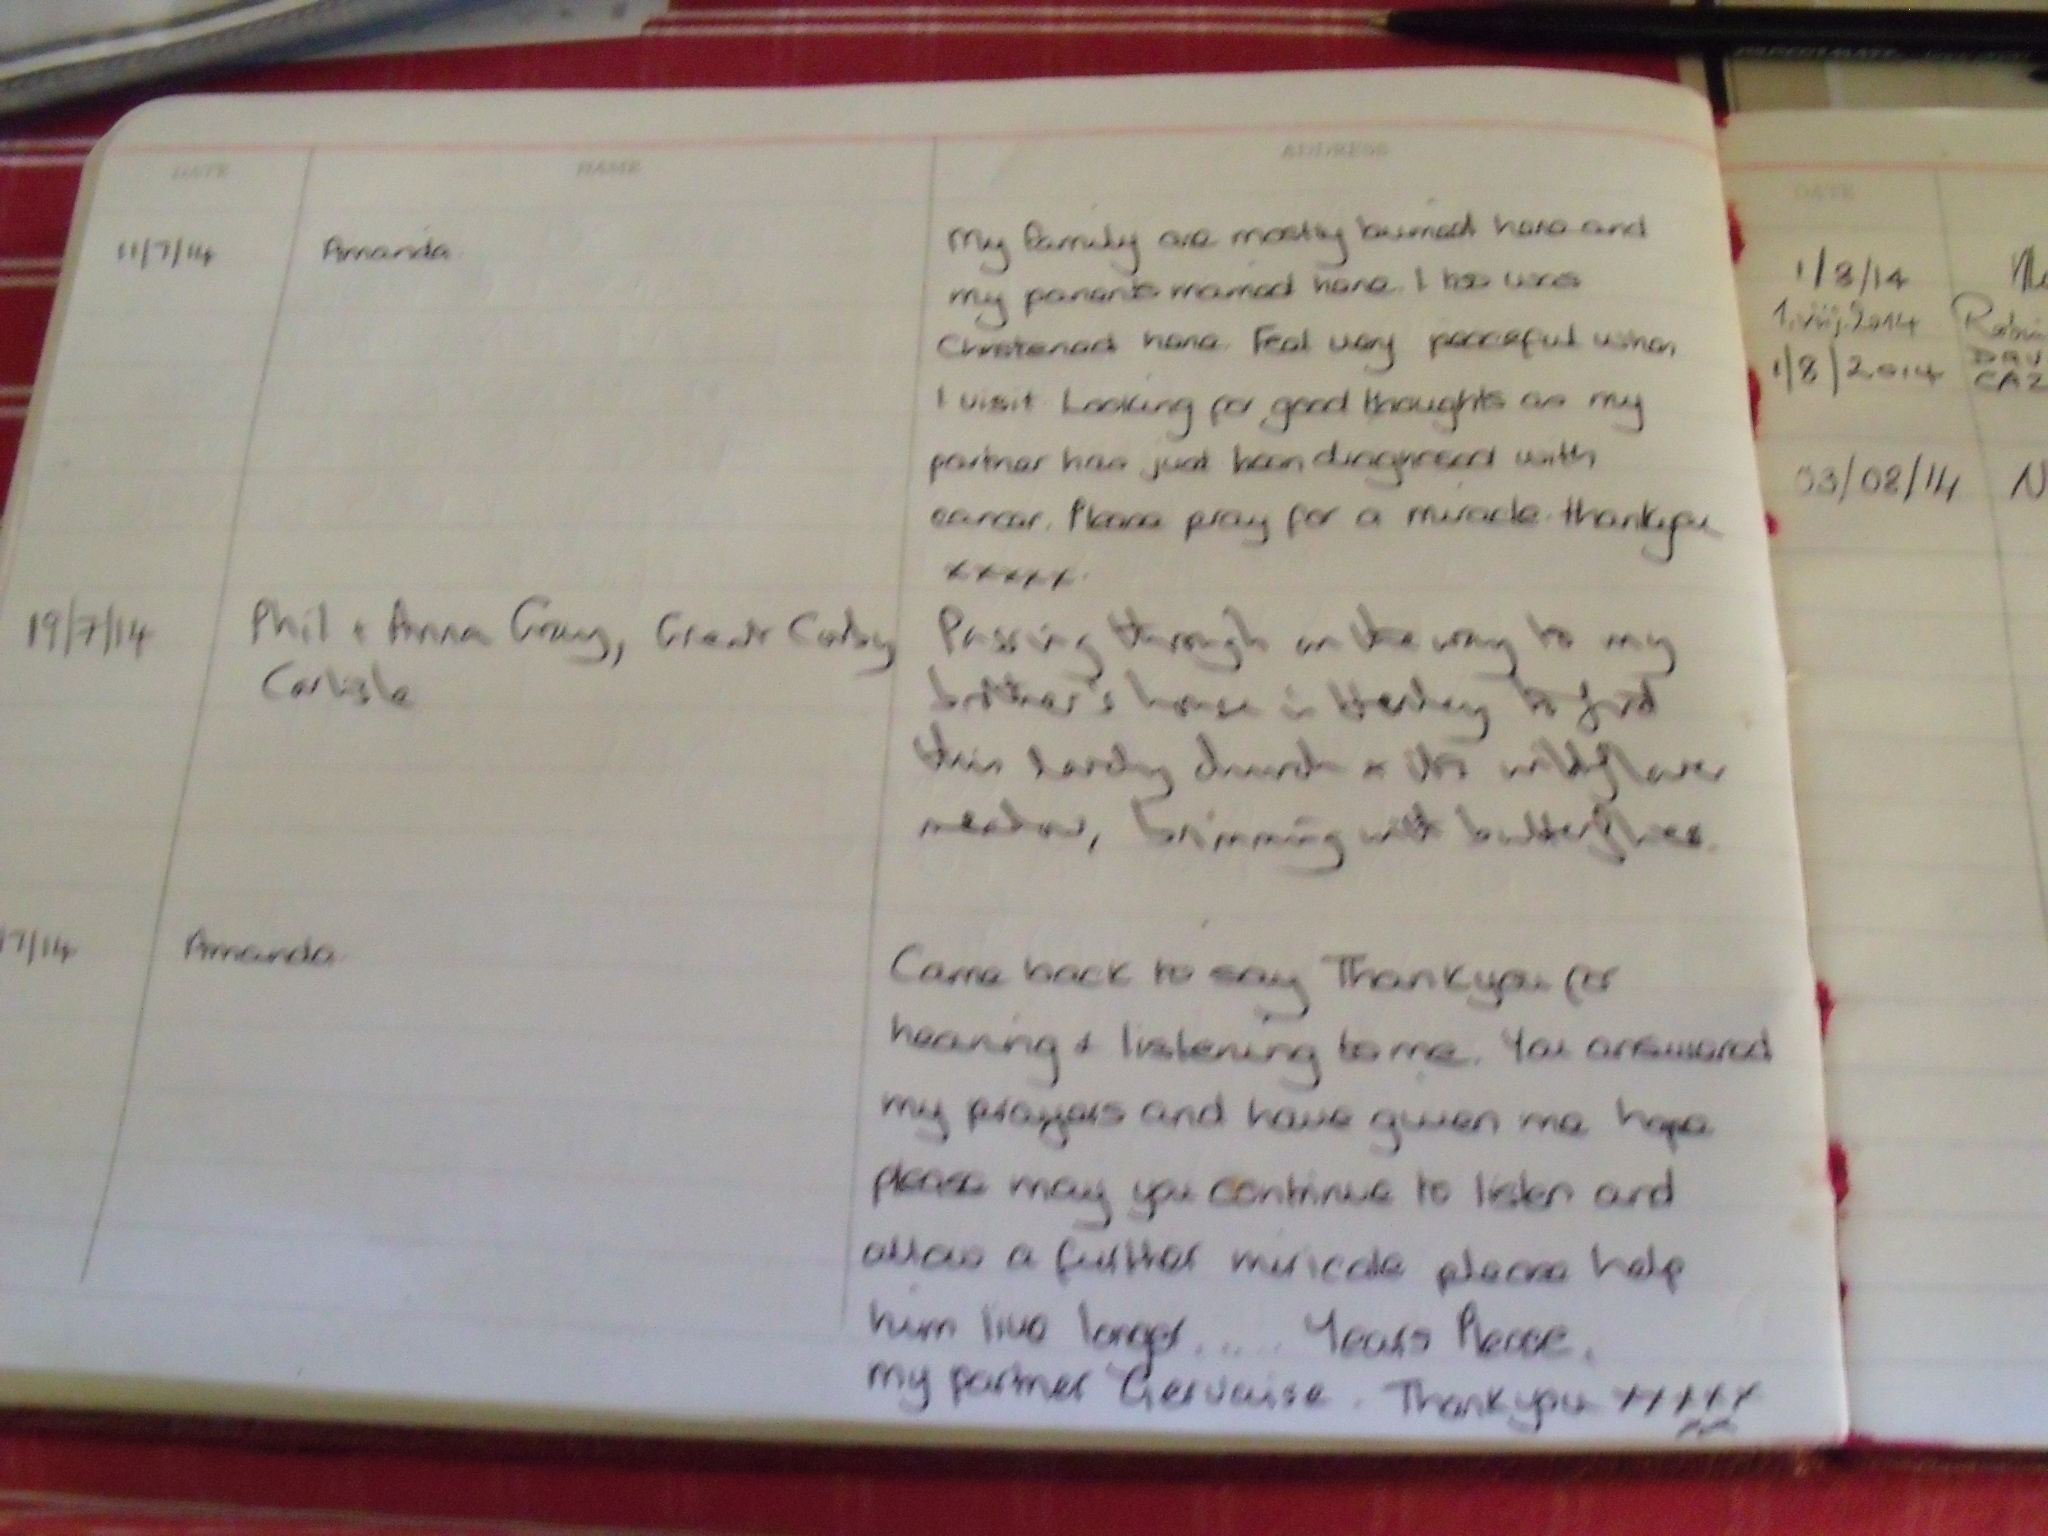 DATE NAME ADDRESS
11/7/14 Amanda. My family are mostly burried here and
my parents married here. I too was
Christened here. Feel very peaceful when
I visit. Looking for good thoughts as my
partner has just been diagnosed with
cancer. Please pray for a miracle. thankyou
xxxxx.
19/7/14 Phil + Anna Gray, Great Corby Passing through on the way to my
Carlisle brother's house in to find
this lovely church + its wildflower
meadow, brimming with butterflies.
7/14 Amanda. Came back to say Thankyou for
hearing + listening to me. You answered
my prayers and have given me hope
please may you continue to listen and
allow a further miricale please help
him live longer..... Years Please.
my partner Gervaise. Thankyou xxxxx
xx
DATE
1/8/14
1.viij.2014 Robin
1/8/2014 DAV
CAZ
03/08/14 N
PAPERMATE